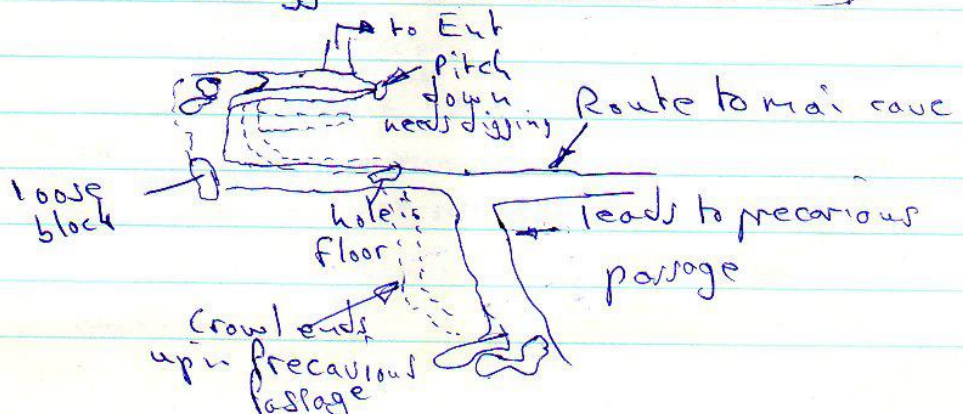 to Ent
Pitch
down
needs digging
Route to mai cave
loose
block
hole in
floor
leads to precarious
passage
Crawl ends
up in precarious
passage